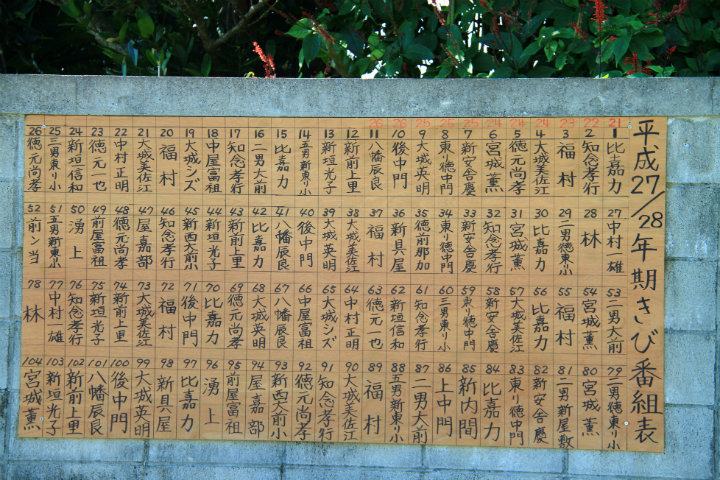 平成27/28年期きび番組表
1 比嘉力
2 知念孝行
3 福村
4 大城美佐江
5 徳元尚孝
6 宮城薫
7 新安舎慶
8 東り徳中門
9 大城英明
10 後中門
11 八幡辰良
12 新前上里
13 新垣光子
14 五男新東り小
15 比嘉力
16 二男大前
17 知念孝行
18 中屋富祖
19 大城シズ
20 福村
21 大城美佐江
22 中村正明
23 徳元一也
24 新垣信和
25 三男東り小
26 徳元尚孝
27 中村一雄
28 林
29 二男徳東小
30 比嘉力
31 宮城薫
32 知念孝行
33 新安舎慶
34 東り徳中門
35 徳前那加
36 新具屋
37 福村
38 大城美佐江
39 大城英明
40 後中門
41 八幡辰良
42 比嘉力
43 新前上里
44 新垣光子
45 新西大前小
46 知念孝行
47 屋嘉部
48 徳元尚孝
49 前屋富祖
50 湧上
51 五男新東小
52 前ン当
53 二男大前
54 宮城薫
55 福村
56 比嘉力
57 大城美佐江
58 新安舎慶
59 東り徳中門
60 三男東り小
61 知念孝行
62 新垣信和
63 徳元一也
64 中村正明
65 大城シズ
66 中屋富祖
67 八幡辰良
68 大城英明
69 徳元尚孝
70 比嘉力
71 後中門
72 福村
73 大城美佐江
74 新前上里
75 新垣光子
76 知念孝行
77 中村一雄
78 林
79 二男徳東り小
80 宮城薫
81 二男新屋敷
82 新安舎慶
83 東り徳中門
84 比嘉力
85 新内間
86 上中門
87 二男大前
88 五男新東り小
89 福村
90 大城美佐江
91 知念孝行
92 徳元尚孝
93 新西大前小
94 屋嘉部
95 前屋富祖
96 湧上
97 比嘉力
98 新具屋
99 大城英明
100 後中門
101 八幡辰良
102 新前上里
103 新垣光子
104 宮城薫